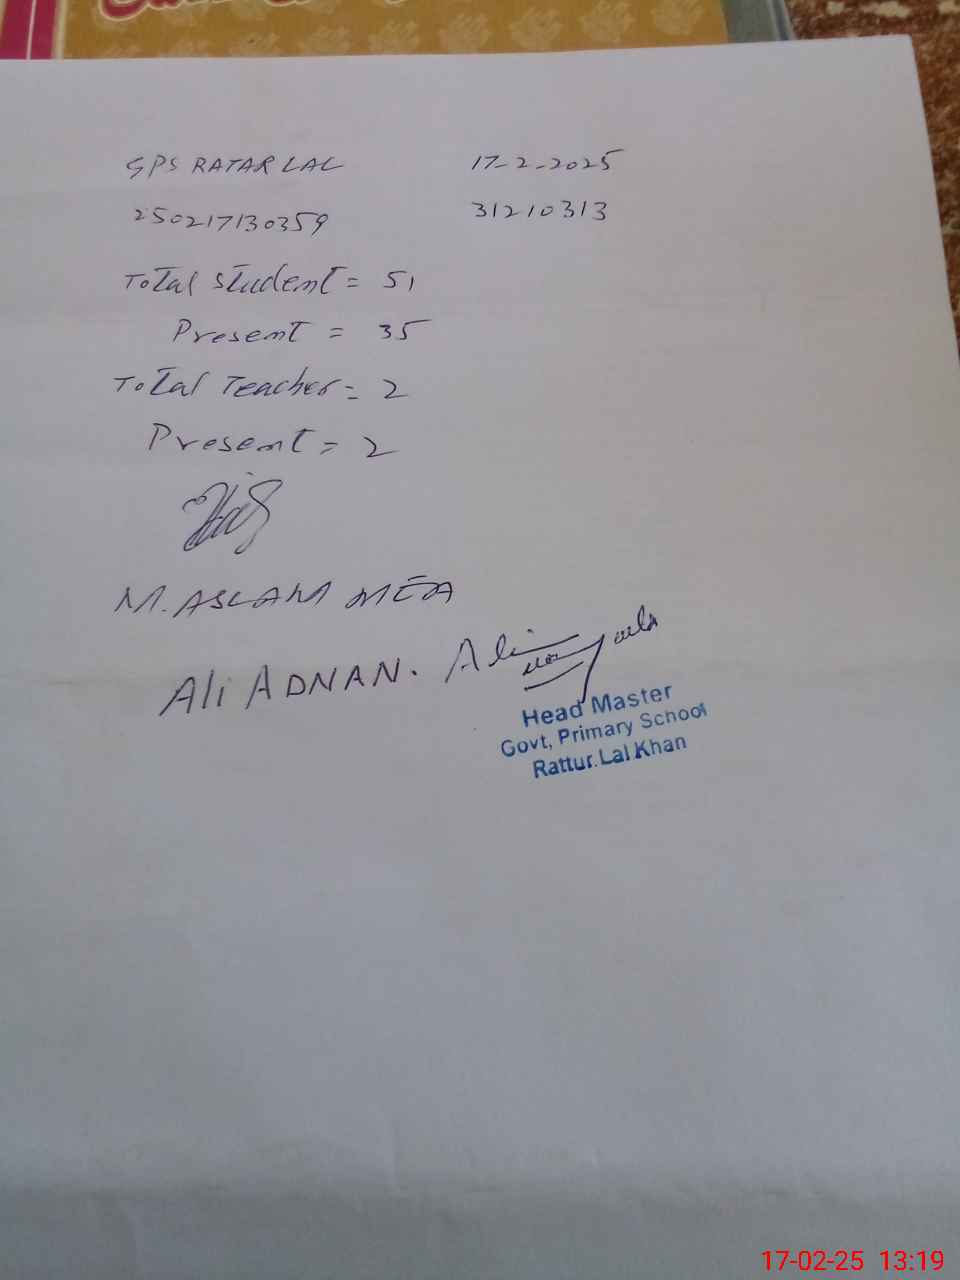 GPS RATAR LAL 17-2-2025
250217130359 31210313
Total student = 51
Present = 35
Total Teacher = 2
Present = 2
M. ASLAM MEA
Ali ADNAN. Ali
Head Master
Govt, Primary School
Rattur.Lal Khan
17-02-25 13:19